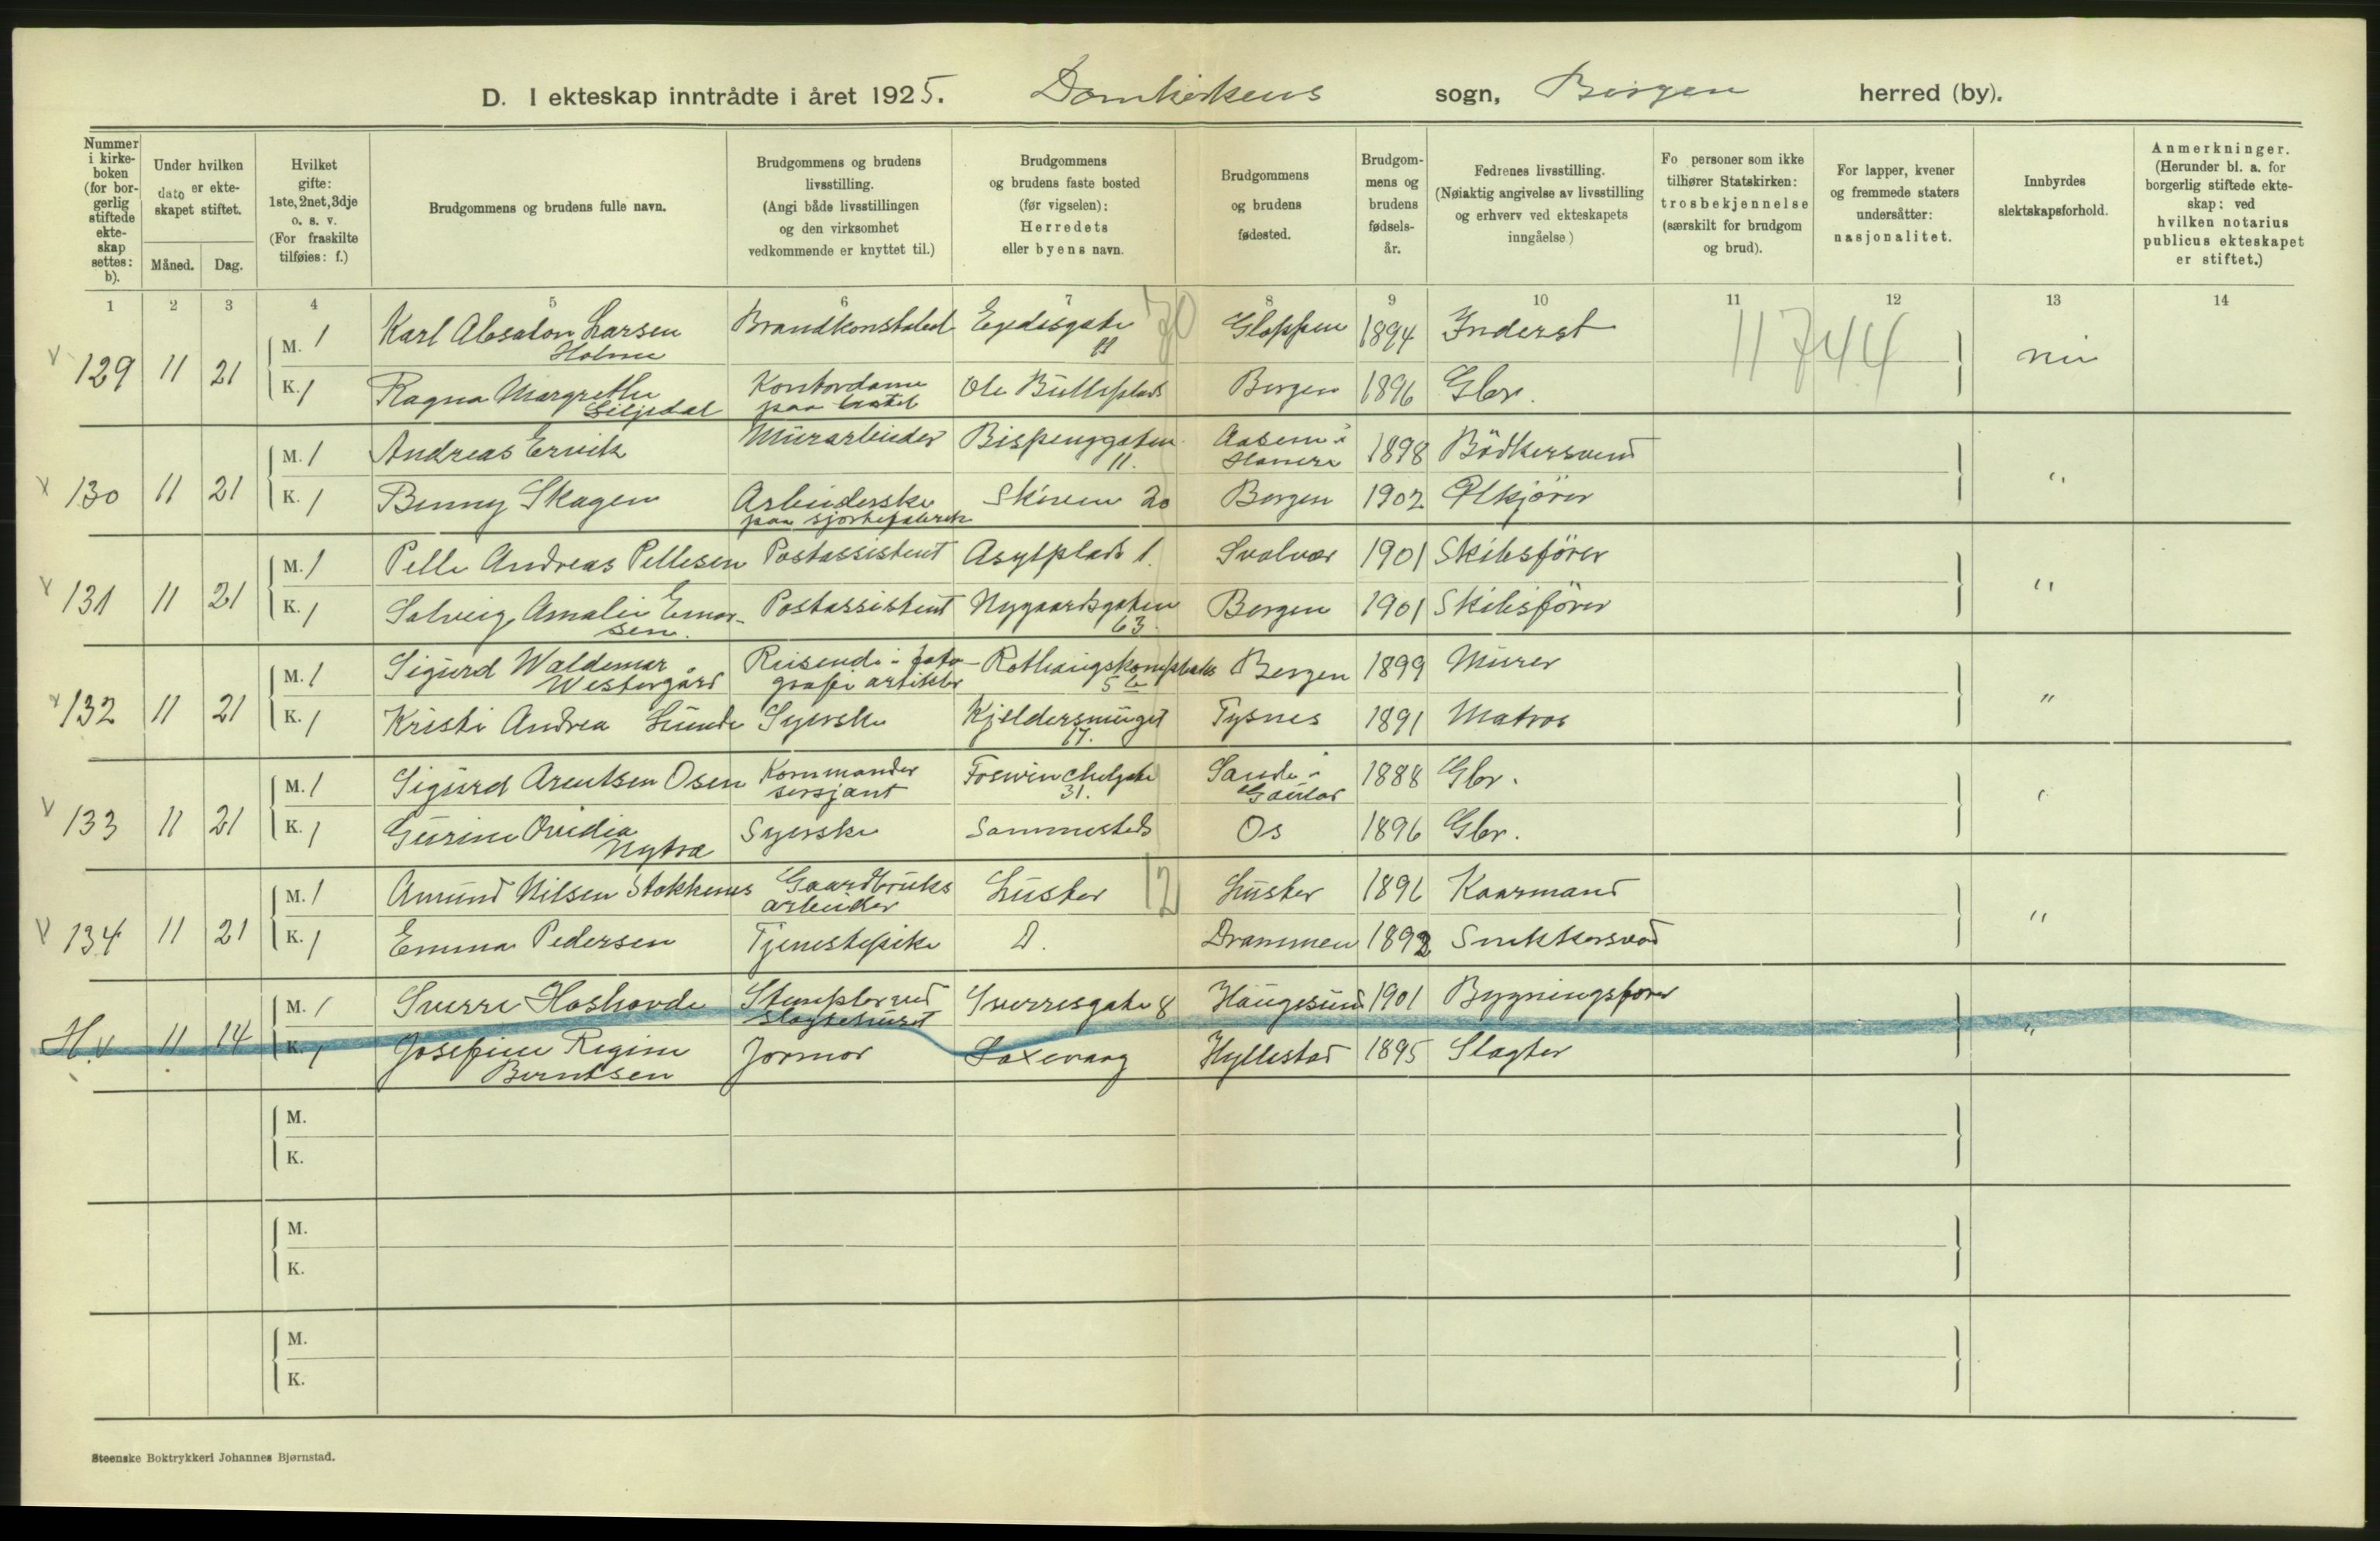 D. I ekteskap inntrådte i året 1925. Domkirkens sogn, Bergen herred (by).
Nummer i kirkeboken (for borgerlig stiftede ekteskap settes: b).
Under hvilken dato er ekteskapet stiftet.
Måned. Dag.
Hvilket gifte: 1ste, 2net, 3dje o. s. v. (For fraskilte tilføies: f.)
Brudgommens og brudens fulle navn.
Brudgommens og brudens livsstilling. (Angi både livsstillingen og den virksomhet vedkommende er knyttet til.)
Brudgommens og brudens faste bosted (før vigselen): Herredets eller byens navn.
Brudgommens og brudens fødested.
Brudgommens og brudens fødselsår.
Fedrenes livsstilling. (Nøiaktig angivelse av livsstilling og erhverv ved ekteskapets inngåelse.)
Fo personer som ikke tilhører Statskirken: trosbekjennelse (særskilt for brudgom og brud).
For lapper, kvener og fremmede staters undersåtter: nasjonalitet.
Innbyrdes slektskapsforhold.
Anmerkninger. (Herunder bl. a. for borgerlig stiftede ekteskap: ved hvilken notarius publicus ekteskapet er stiftet.)
1 2 3 4 5 6 7 8 9 10 11 12 13 14
11744
129 11 21 M. 1 Karl Absalon Larsen Holme Brandkonstabel Egedesgate 11 Gloppen 1894 Inderst nei
K. 1 Ragna Margrethe Liljedal Kontordame paa hotel Ole Bullsplads Bergen 1896 Gbr.
130 11 21 M. 1 Andreas Ervik Murarbeider Bispenggaten 11. Aasem i 1898 Bödkersvend "
K. 1 Benny Skagen Arbeiderske paa Skiven 20 Bergen 1902 Ölkjörer
131 11 21 M. 1 Pelle Andreas Pellesen Postassistent Asylplads 1. Svolvær 1901 Skibsförer "
K. 1 Solveig Amalie Einarsen. Postassistent Nygaardsgaten 63. Bergen 1901 Skibsförer
132 11 21 M. 1 Sigurd Waldemar Westergård Reisende i fotografi artikler Rothaugskomplekset 5 b Bergen 1899 Murer "
K. 1 Kristi Andrea Lunde Syerske Kjeldersmuget 17. Tysnes 1891 Matros
133 11 21 M. 1 Sigurd Arentsen Osen Kommander sersjant Foswinckelgate 31. Sande i Gaular 1888 Gbr. "
K. 1 Gurine Ovidia Nytræ Syerske Sammesteds Os 1896 Gbr.
134 11 21 M. 1 Amund Nilsen Stokkenes Gaardbruks arbeider Luster 12 Luster 1896 Kaarmand "
K. 1 Emma Pedersen Tjenestepike D. Drammen 1892 Snekkersvend
H.v 11 14 M. 1 Sverre Hashovde Stempler ved Slagtehuset Sverresgate 8 Haugesund 1901 Bygningsfører "
K. 1 Josefine Regine Berntsen Jormor Laxevaag Hyllestad 1895 Slagter
M.
K.
M.
K.
M.
K.
Steenske Boktrykkeri Johannes Bjørnstad.